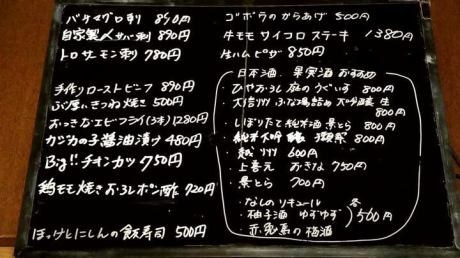 バチマグロ刺 890円
自家製〆サバ刺 890円
トロサーモン刺 780円
手作りローストビーフ 890円
ぶ厚いきつね焼き 500円
おっきなエビフライ(5本)1280円
カジカの子醤油漬け 480円
Big!!チキンカツ 750円
鶏モモ焼きおろしポン酢 720円
ほっけとにしんの飯寿司 500円
ゴボウのからあげ 500円
牛モモサイコロステーキ 1380円
生ハムピザ 850円
日本酒、果実酒おすすめ
・ひやおろし 庭のうぐいす 800円
・大信州 ふな場詰め 大吟醸 生 800円
・しぼりたて純米酒 景とら 800円
・純米大吟醸 獺祭 800円
・越州 600円
・上喜元 おきな 750円
・景とら 700円
・なしのリキュール
・柚子酒 ゆずゆず
・赤兎馬の梅酒
各500円